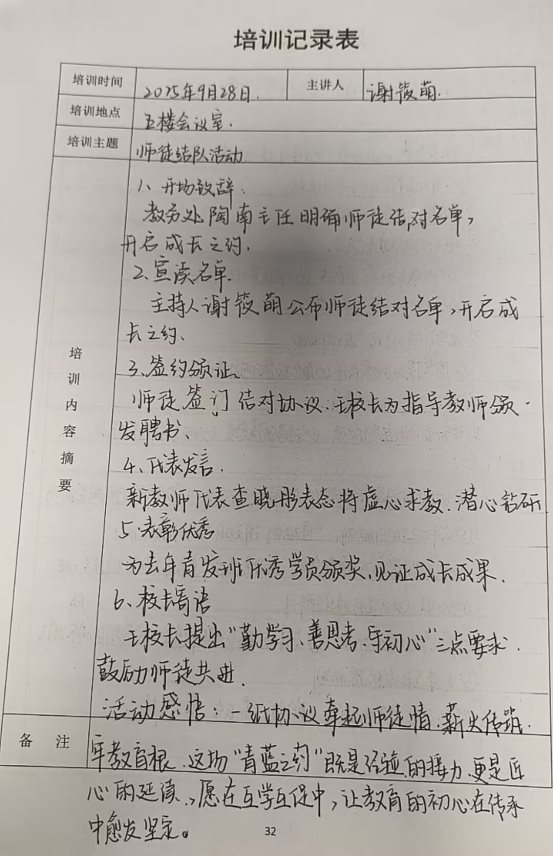 培训记录表
培训时间 2025年9月28日. 主讲人 谢筱萌.
培训地点 五楼会议室.
培训主题 师徒结队活动
培训内容摘要
1、开场致辞.
教务处陶南主任明确师徒结对名单,
开启成长之约.
2.宣读名单.
主持人谢筱萌公布师徒结对名单,开启成
长之约、
3.签约颁证.
师徒签订结对协议.王校长为指导教师颁
发聘书、
4、代表发言.
新教师代表查晓彤表态将虚心求教.潜心钻研
5.表彰优秀
为去年青发班优秀学员颁奖.见证成长成果.
6、校长寄语
王校长提出“勤学习、善思考、守初心”三点要求.
鼓励师徒共进.
活动感悟:一纸协议牵起师徒情.薪火传筑
备 注
牢教育根.这场“青蓝之约”既是经验的接力.更是匠
心的延续.,愿在互学互促中,让教育的初心在传承
中愈发坚定。
32